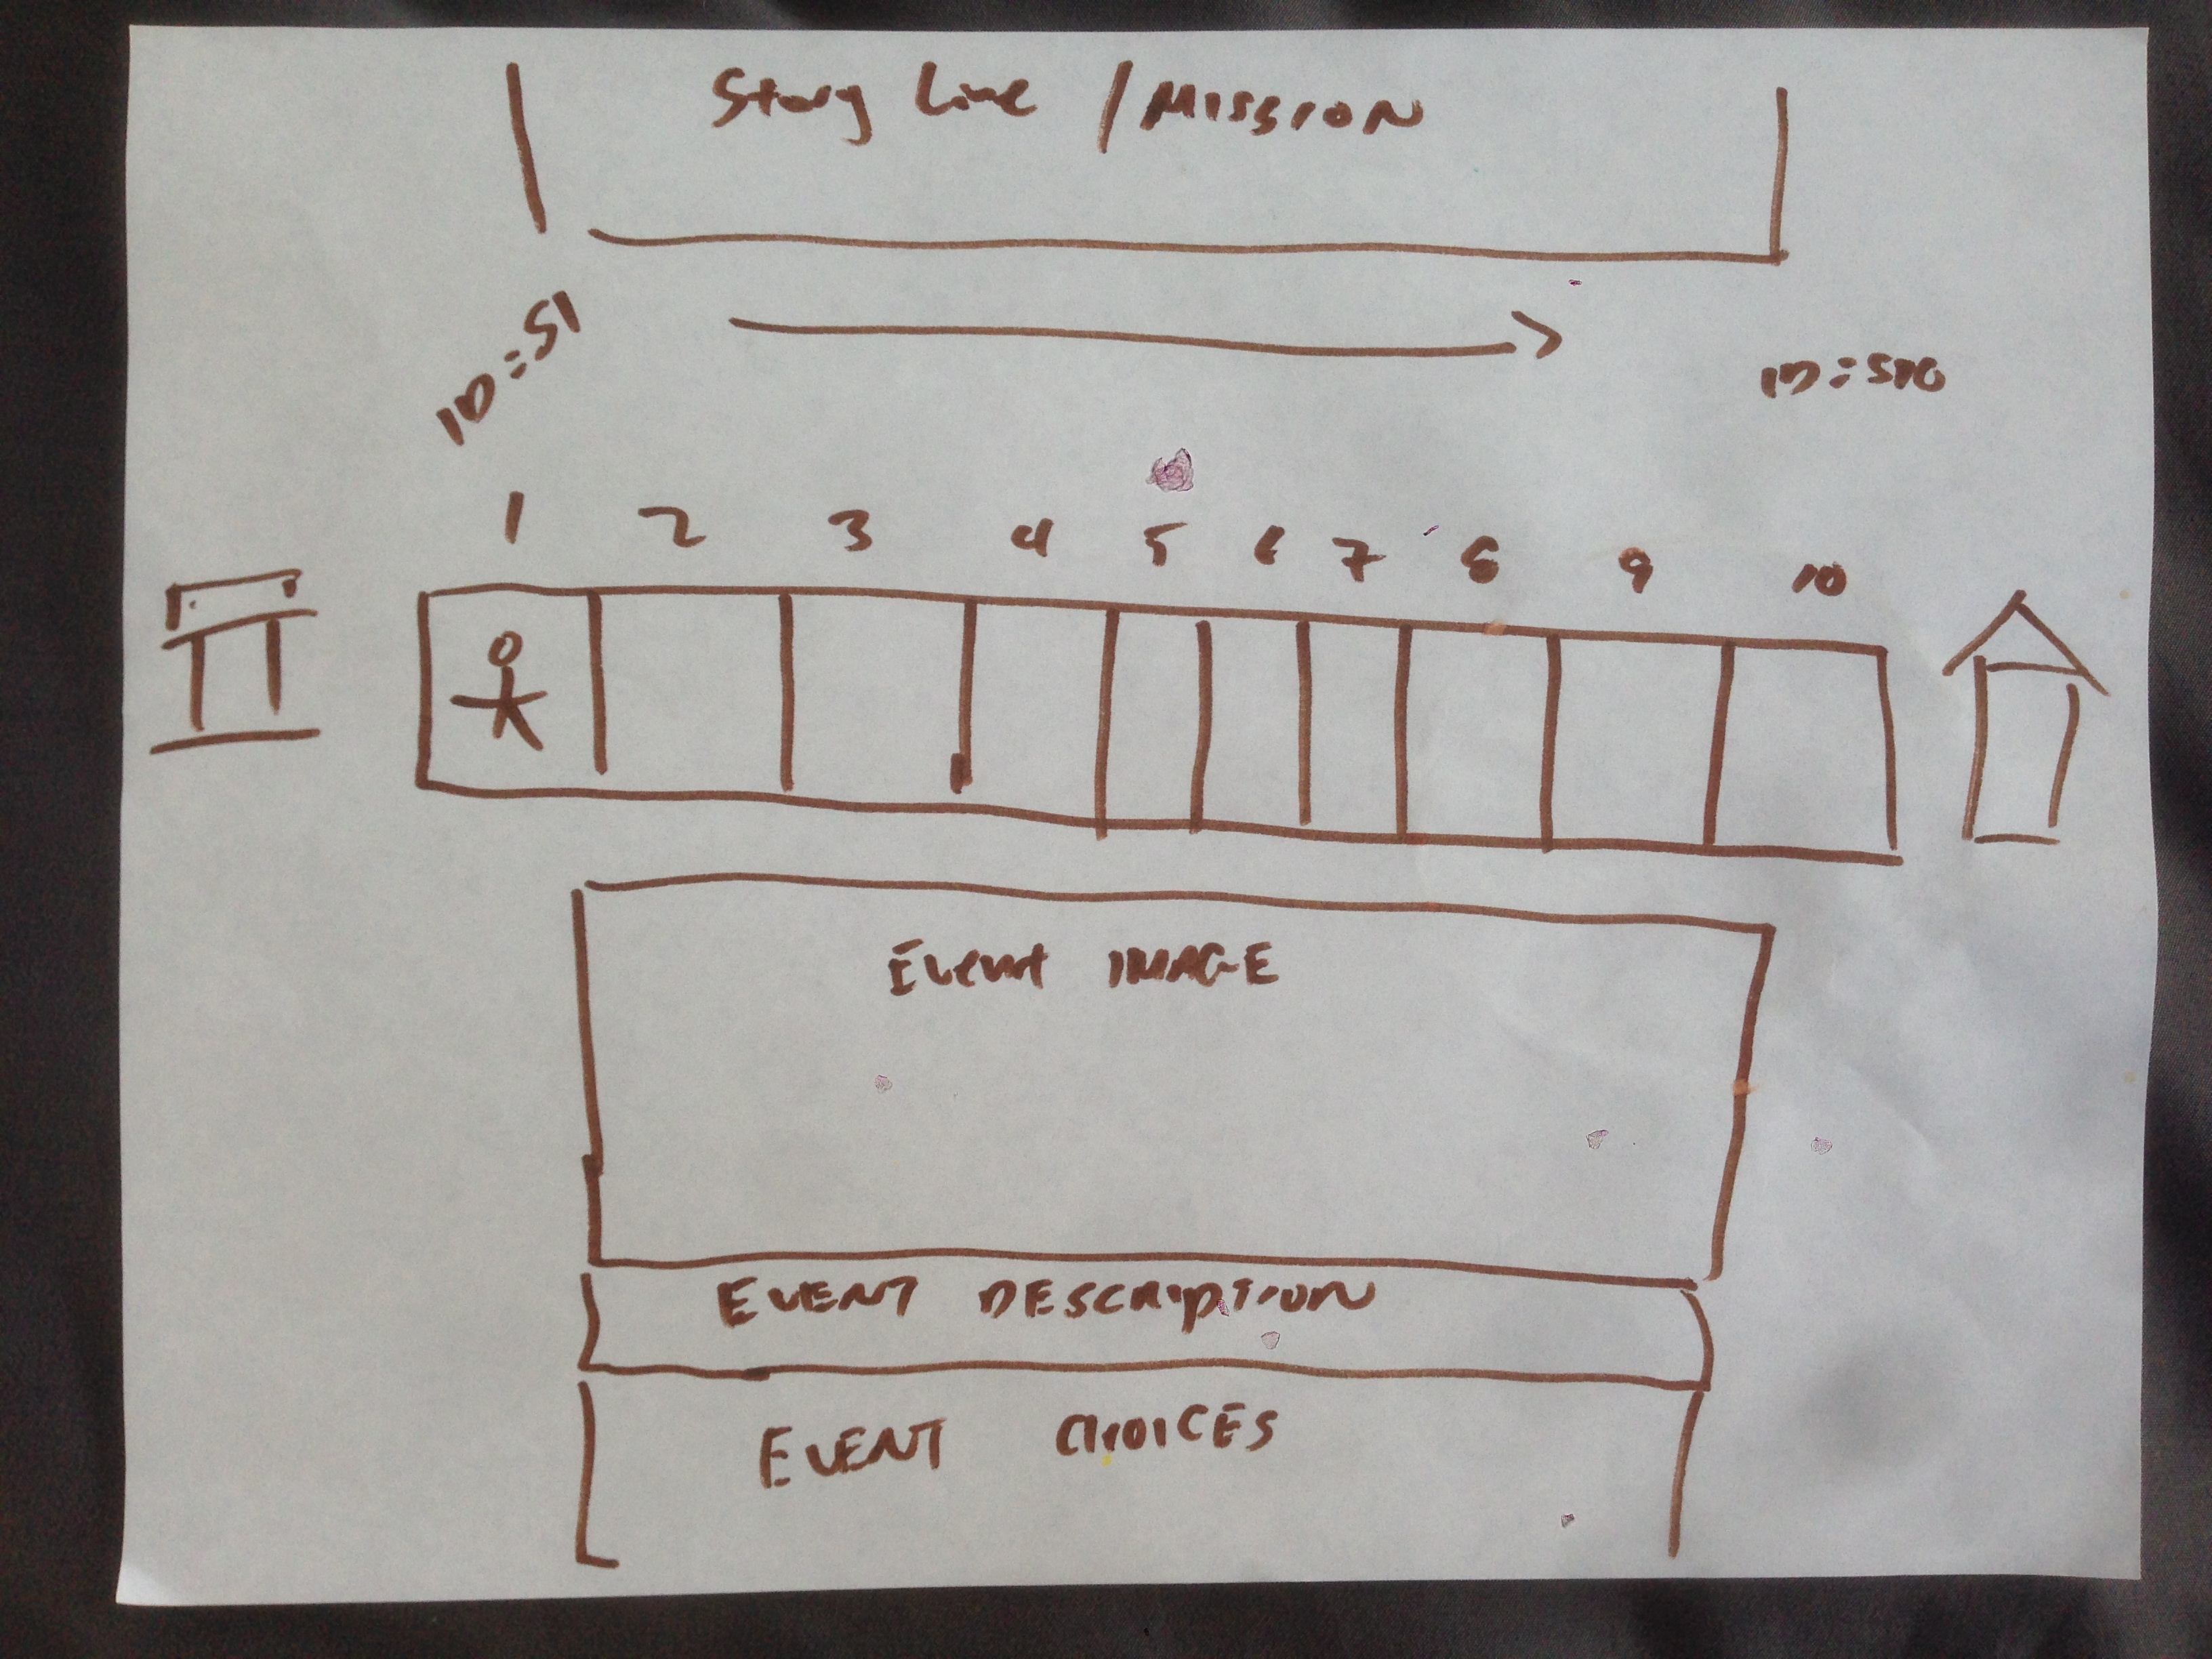 Story Line / MISSION
ID=S1
ID=S10
1 2 3 4 5 6 7 8 9 10
Event IMAGE
EVENT DESCRIPTION
EVENT CHOICES